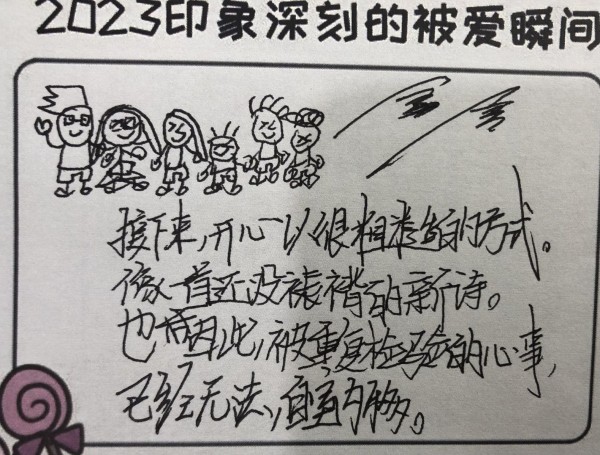 2023印象深刻的被爱瞬间
接下来,开心以很粗糙的方式。
像一首还没裱褙的新诗。
也因此,被重复检验的心事,
已经无法,自